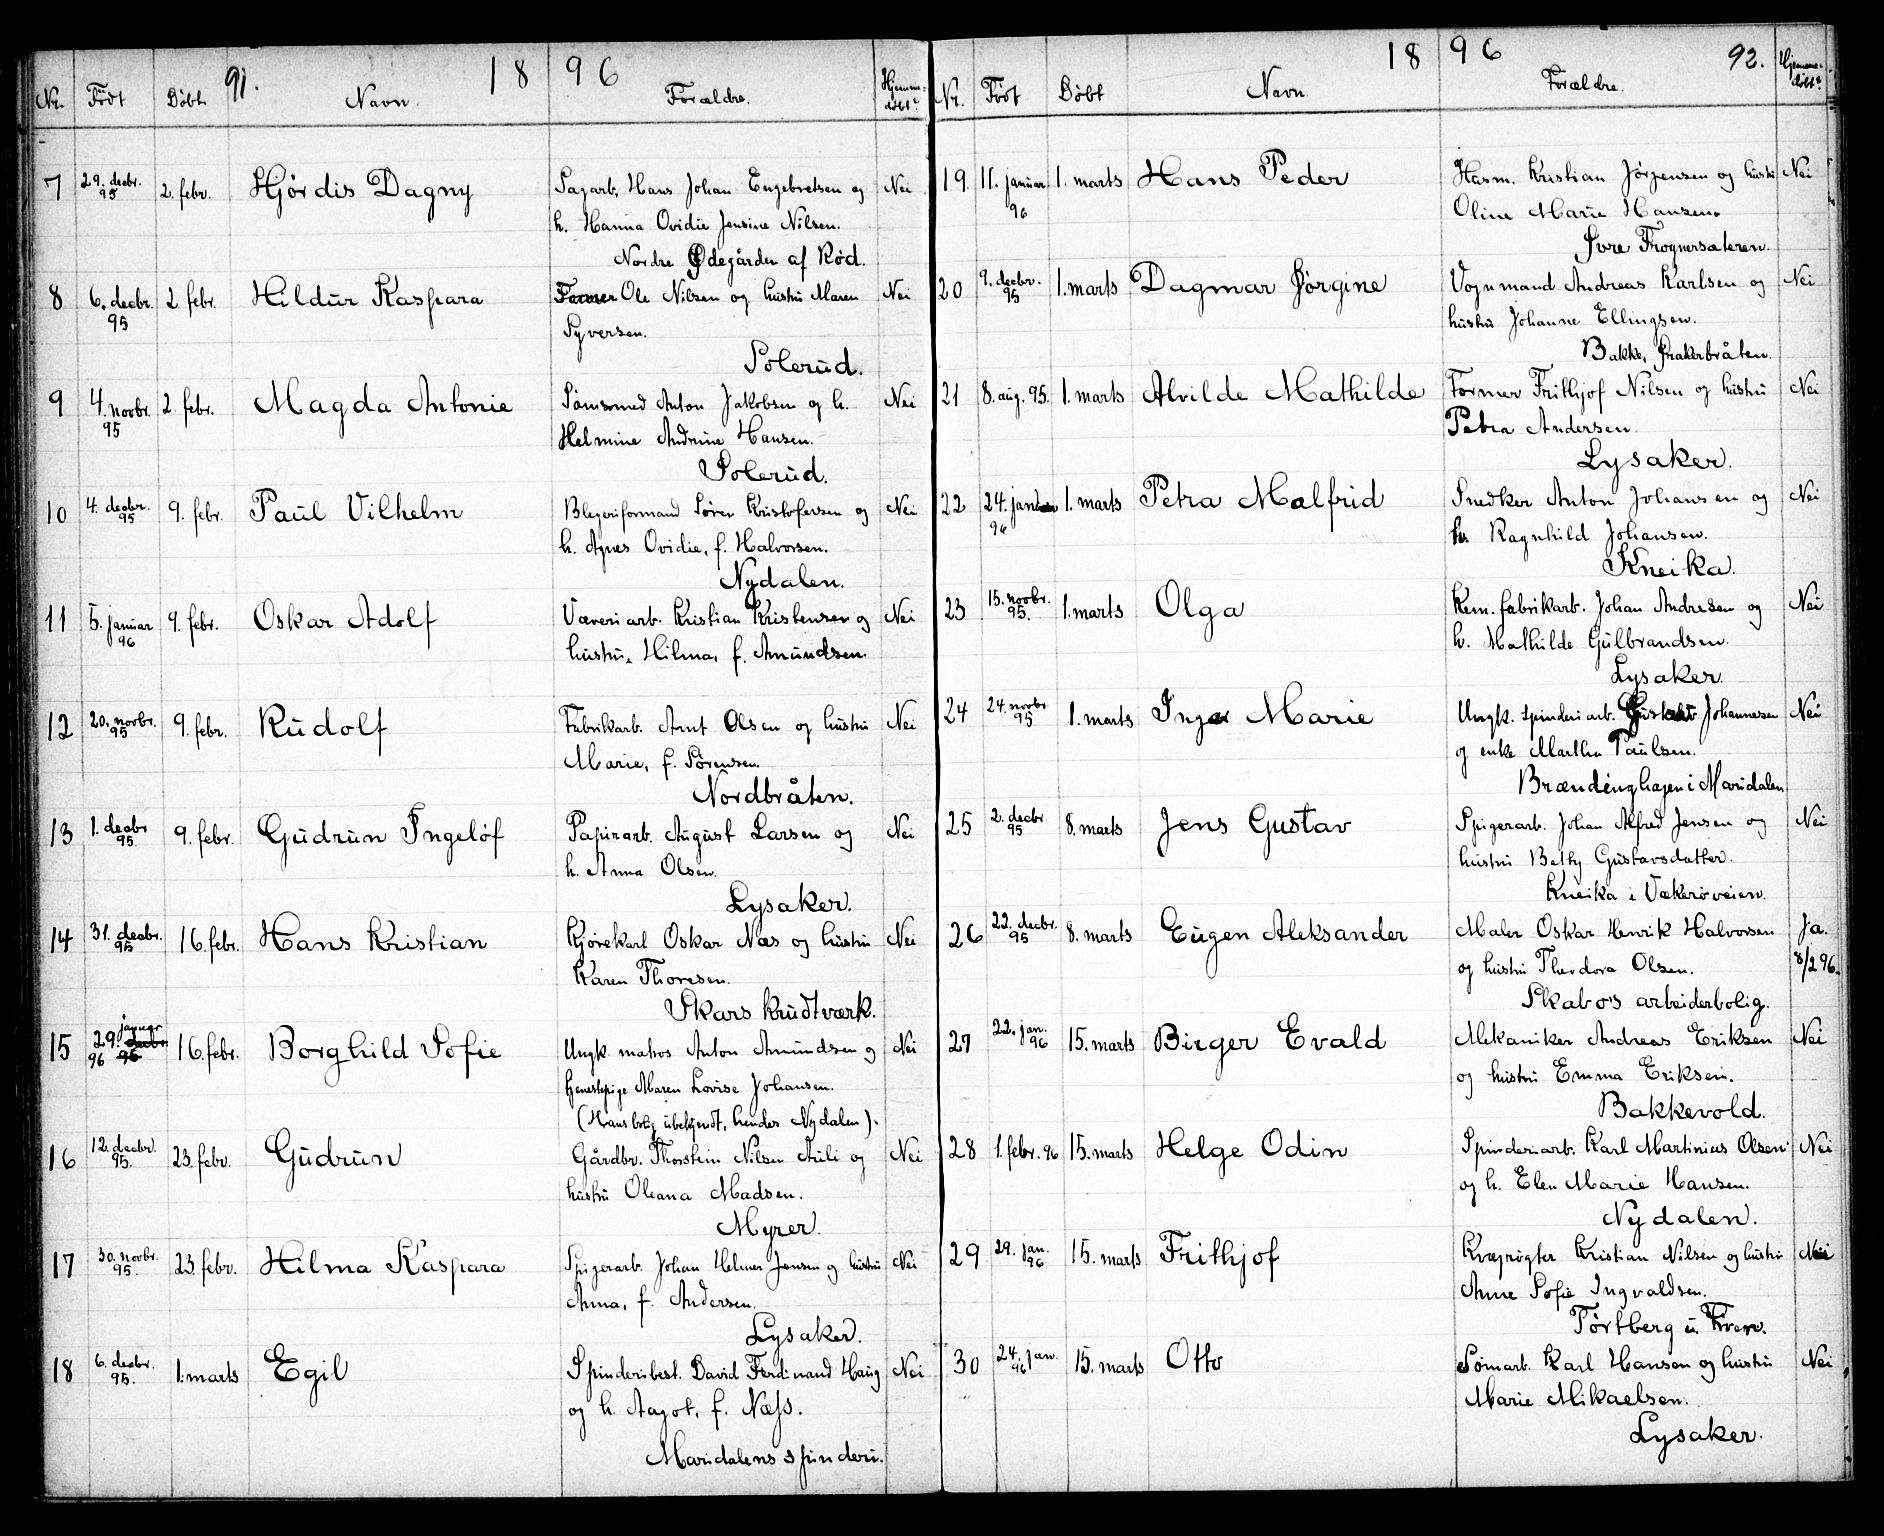 91. 1896
Nr. Født Døbt Navn Forældre. Hjemme-døbt?
7 29. decbr. 95 2. febr. Hjørdis Dagny Sagarb. Hans Johan Engebretsen og Nei
h. Hanna Ovidie Jensine Nilsen.
Nordre Ødegården af Rød.
8 6. decbr. 95 2. febr. Hildur Kaspara Former Ole Nilsen og hustru Maren Nei
Syversen.
Solerud.
9 4. novbr. 95 2. febr. Magda Antonie Sømsmed Anton Jakobsen og h. Nei
Helmine Andrine Hansen.
Solerud.
10 4. decbr. 95 9. febr. Paul Vilhelm Blegeriformand Søren Kristofersen og Nei
h. Agnes Ovidie, f. Halvorsen.
Nydalen.
11 5. januar 96 9. febr. Oskar Adolf Væveriarb. Kristian Kristensen og Nei
hustru, Hilma, f. Amundsen.
12 20. novbr. 95 9. febr. Rudolf Fabrikarb. Arnt Olsen og hustru Nei
Marie, f. Sørensen.
Nordbråten.
13 1. decbr 95. 9. febr. Gudrun Ingeløf Papirarb. August Larsen og Nei
h. Anna Olsen.
Lysaker.
14 31. decbr. 95 16. febr. Hans Kristian Kjørekarl Oskar Næs og hustru Nei
Karen Thoresen.
Skars Krudtværk.
15 29. januar decbr. 96 95 16. febr. Borghild Sofie Ungk. matros Anton Amundsen og Nei
tjenestepige Maren Lovise Johansen.
(Hans bolig ubekjendt, hendes Nydalen).
16 12. decbr. 95. 23. febr. Gudrun Gårdbr. Thorstein Nilsen Auli og Nei
hustru Oleana Madsen.
Myrer.
17 30. novbr. 95. 23. febr. Hilma Kaspara Spigerarb. Johan Helmer Jensen og hustru Nei
Anna, f. Andersen.
Lysaker.
18 6. decbr. 95. 1. marts Egil Spinderibest. David Ferdinand Haug Nei
og h. Aagot, f. Næss.
Maridalens spinderi.
1896 92.
Nr. Født Døbt Navn Forældre. Hjemme-døbt?
19. 11. januar 96 1. marts Hans Peder Husm. Kristian Jørgensen og hustru Nei
Oline Marie Hansen.
Øvre Frognersæteren.
20 9. decbr. 95 1. marts Dagmar Jørgine Vognmand Andreas Karlsen og Nei
hustru Johanne Ellingsen.
Bakke, Prakerbråten.
21 8. aug. 95. 1. marts Alvilde Mathilde Former Frithjof Nilsen og hustru Nei
Petra Andersen.
Lysaker.
22 24. januar 96 1. marts Petra Malfrid Snedker Anton Johansen og Nei
h. Ragnhild Johansen.
Kneika.
23 15. novbr. 95. 1. marts Olga Kem. fabrikarb. Johan Andresen og Nei
h. Mathilde Gulbrandsen.
Lysaker.
24 24. novbr 95 1. marts Inga Marie Ungk. spinderiarb. Gustav Johannesen Nei
og enke Martha Paulsen.
Brændinghagen i Maridalen
25 2. decbr 95 8. marts Jens Gustav Spigerarb. Johan Alfred Jensen og Nei
hustru Betty Gustavsdatter.
Kneika i Vækerøveien.
26 22. decbr. 95 8. marts Eugen Aleksander Maler Oskar Henrik Halvorsen Ja.
og hustru Theodora Olsen. 8/2 96.
Skabo's arbeiderbolig.
27 22. jan. 96 15. marts Birger Evald Mekaniker Andreas Eriksen Nei
og hustru Emma Eriksen.
Bakkevold.
28 1. febr. 96 15. marts Helge Odin Spinderiarb. Karl Martinius Olsen Nei
og h. Elen Marie Hansen.
Nydalen.
29 29. jan. 96 15. marts Frithjof Kvægrøgter Kristian Nilsen og hustru Nei
Anne Sofie Ingvaldsen.
Tørtberg u. Frogn.
30 24. jan. 96 15. marts Otto Sømarb. Karl Hansen og hustru Nei
Marie Mikaelsen.
Lysaker.